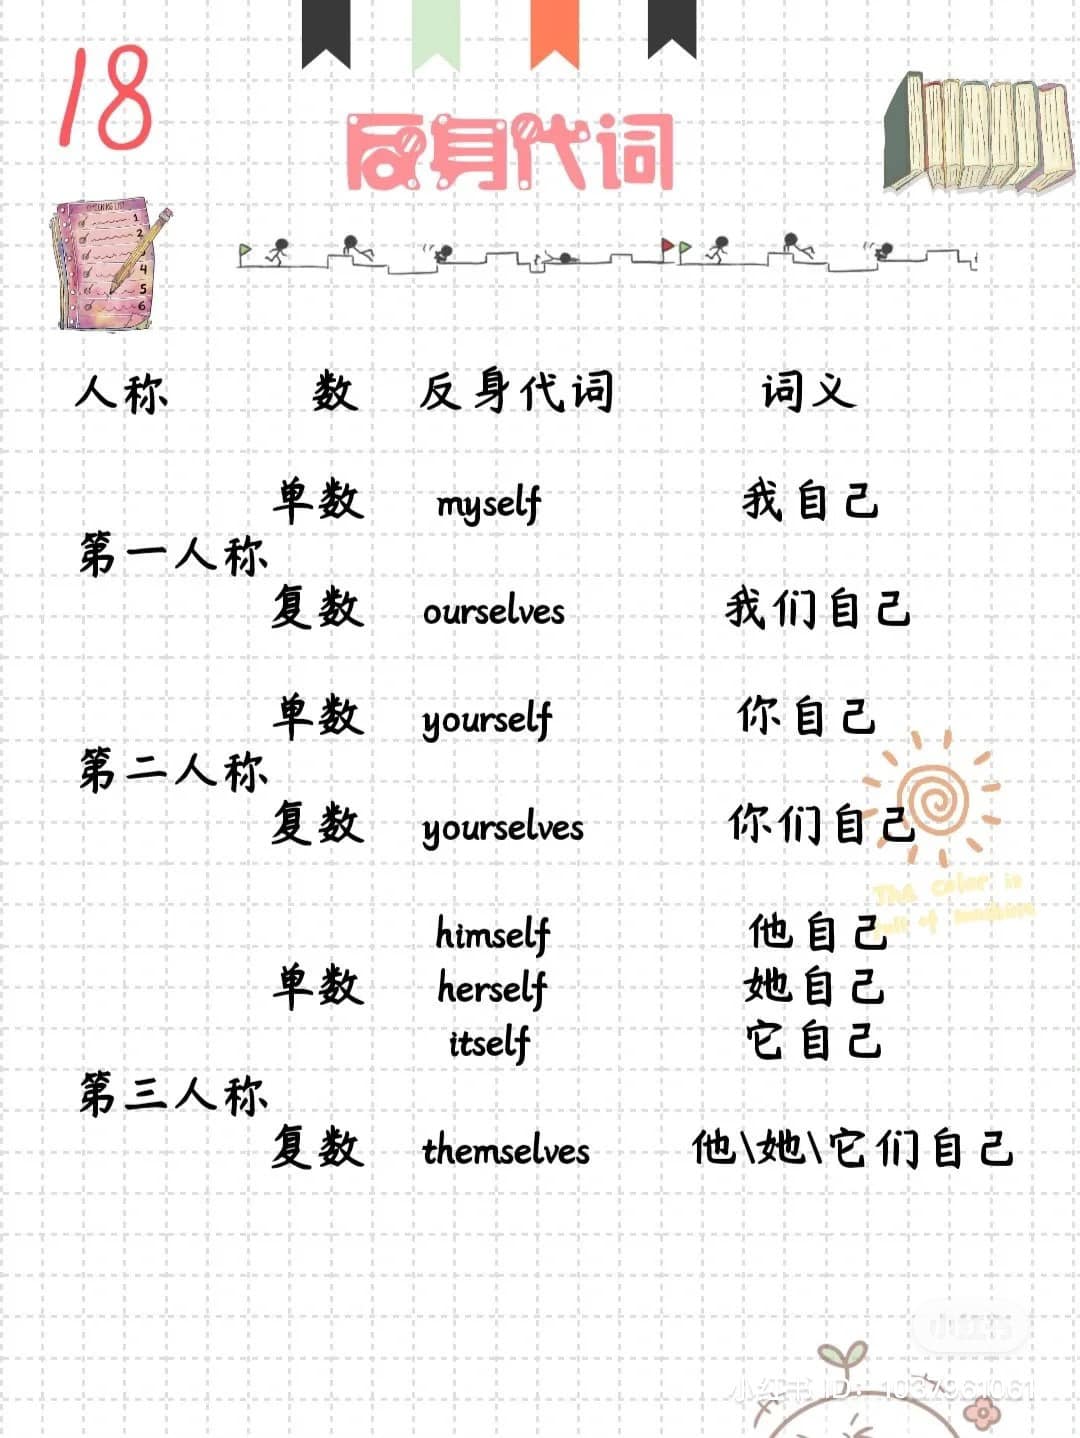 18
反身代词
1
2
3
4
5
6
人称 数 反身代词 词义
单数 myself 我自己
第一人称
复数 ourselves 我们自己
单数 yourself 你自己
第二人称
复数 yourselves 你们自己
The color is
full of
himself 他自己
单数 herself 她自己
itself 它自己
第三人称
复数 themselves 他\她\它们自己
小红书
小红书 ID: 1037961061